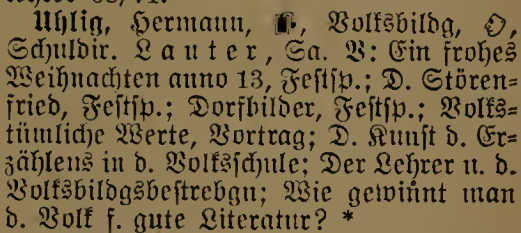 Uhlig, Hermann, Volksbildg,
Schuldir. Lauter, Sa. V: Ein frohes
Weihnachten anno 13, Festsp.; D. Stören=
fried, Festsp.; Dorfbilder, Festsp.; Volks=
tümliche Werte, Vortrag; D. Kunst d. Er=
zählens in d. Volksschule; Der Lehrer u. d.
Volksbildgsbestrebgn; Wie gewinnt man
d. Volk f. gute Literatur? *